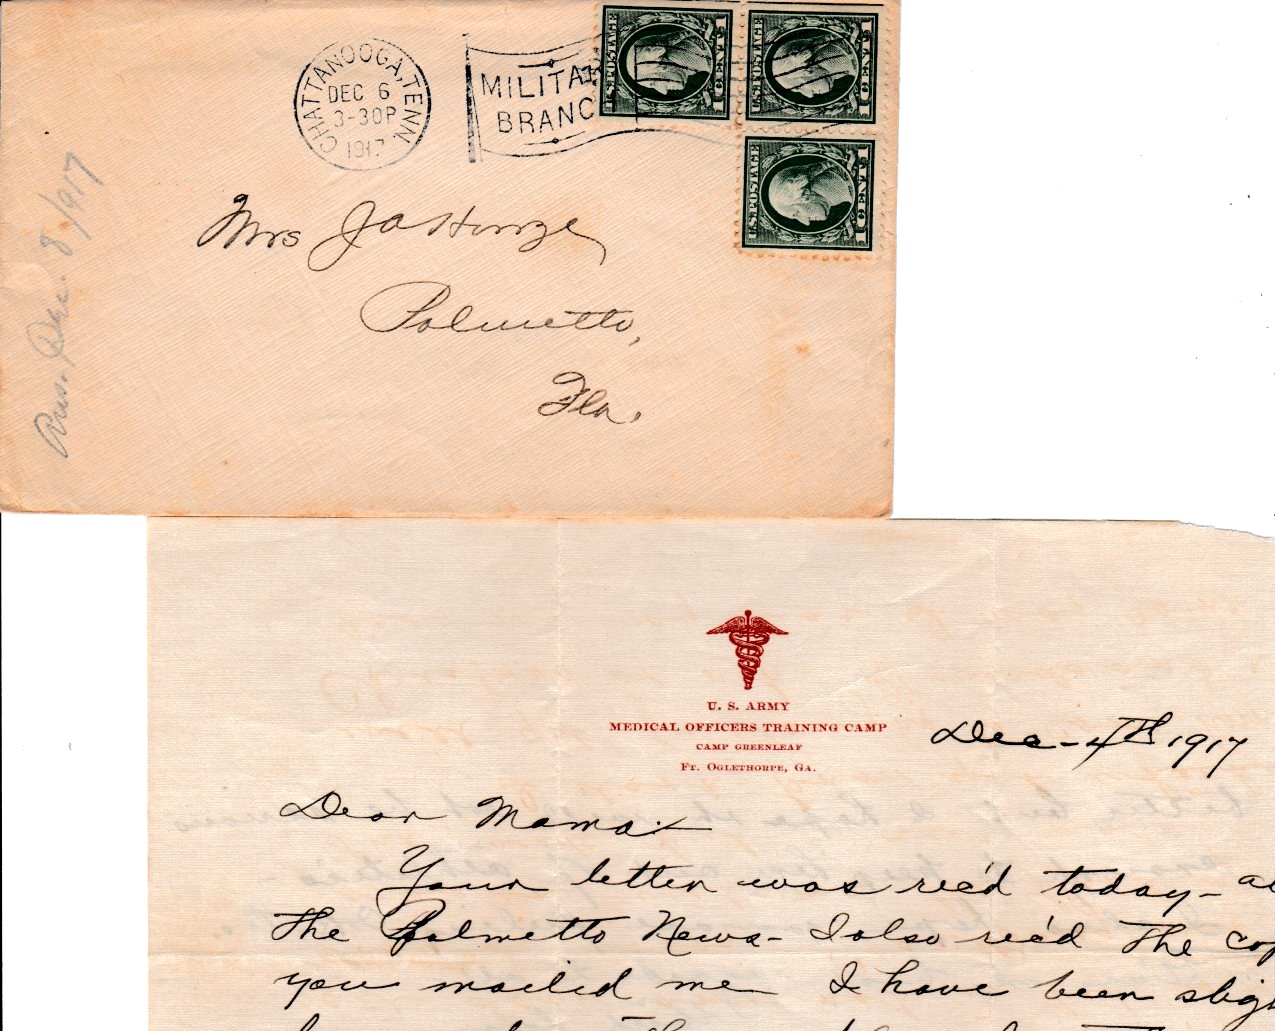 CHATTANOOGA, TENN.
DEC 6
3-30P
1917
MILITA
BRANC
U.S. POSTAGE 1 CENT
U.S. POSTAGE 1 CENT
U.S. POSTAGE 1 CENT
Mrs J A
Palmetto,
Fla.
Dec. 8/917
U. S. ARMY
MEDICAL OFFICERS TRAINING CAMP
CAMP GREENLEAF
FT. OGLETHORPE, GA.
Dec - 4th 1917
Dear Mama -
Your letter was rec'd today -
The Palmetto News - I also rec'd the
you mailed me I have been